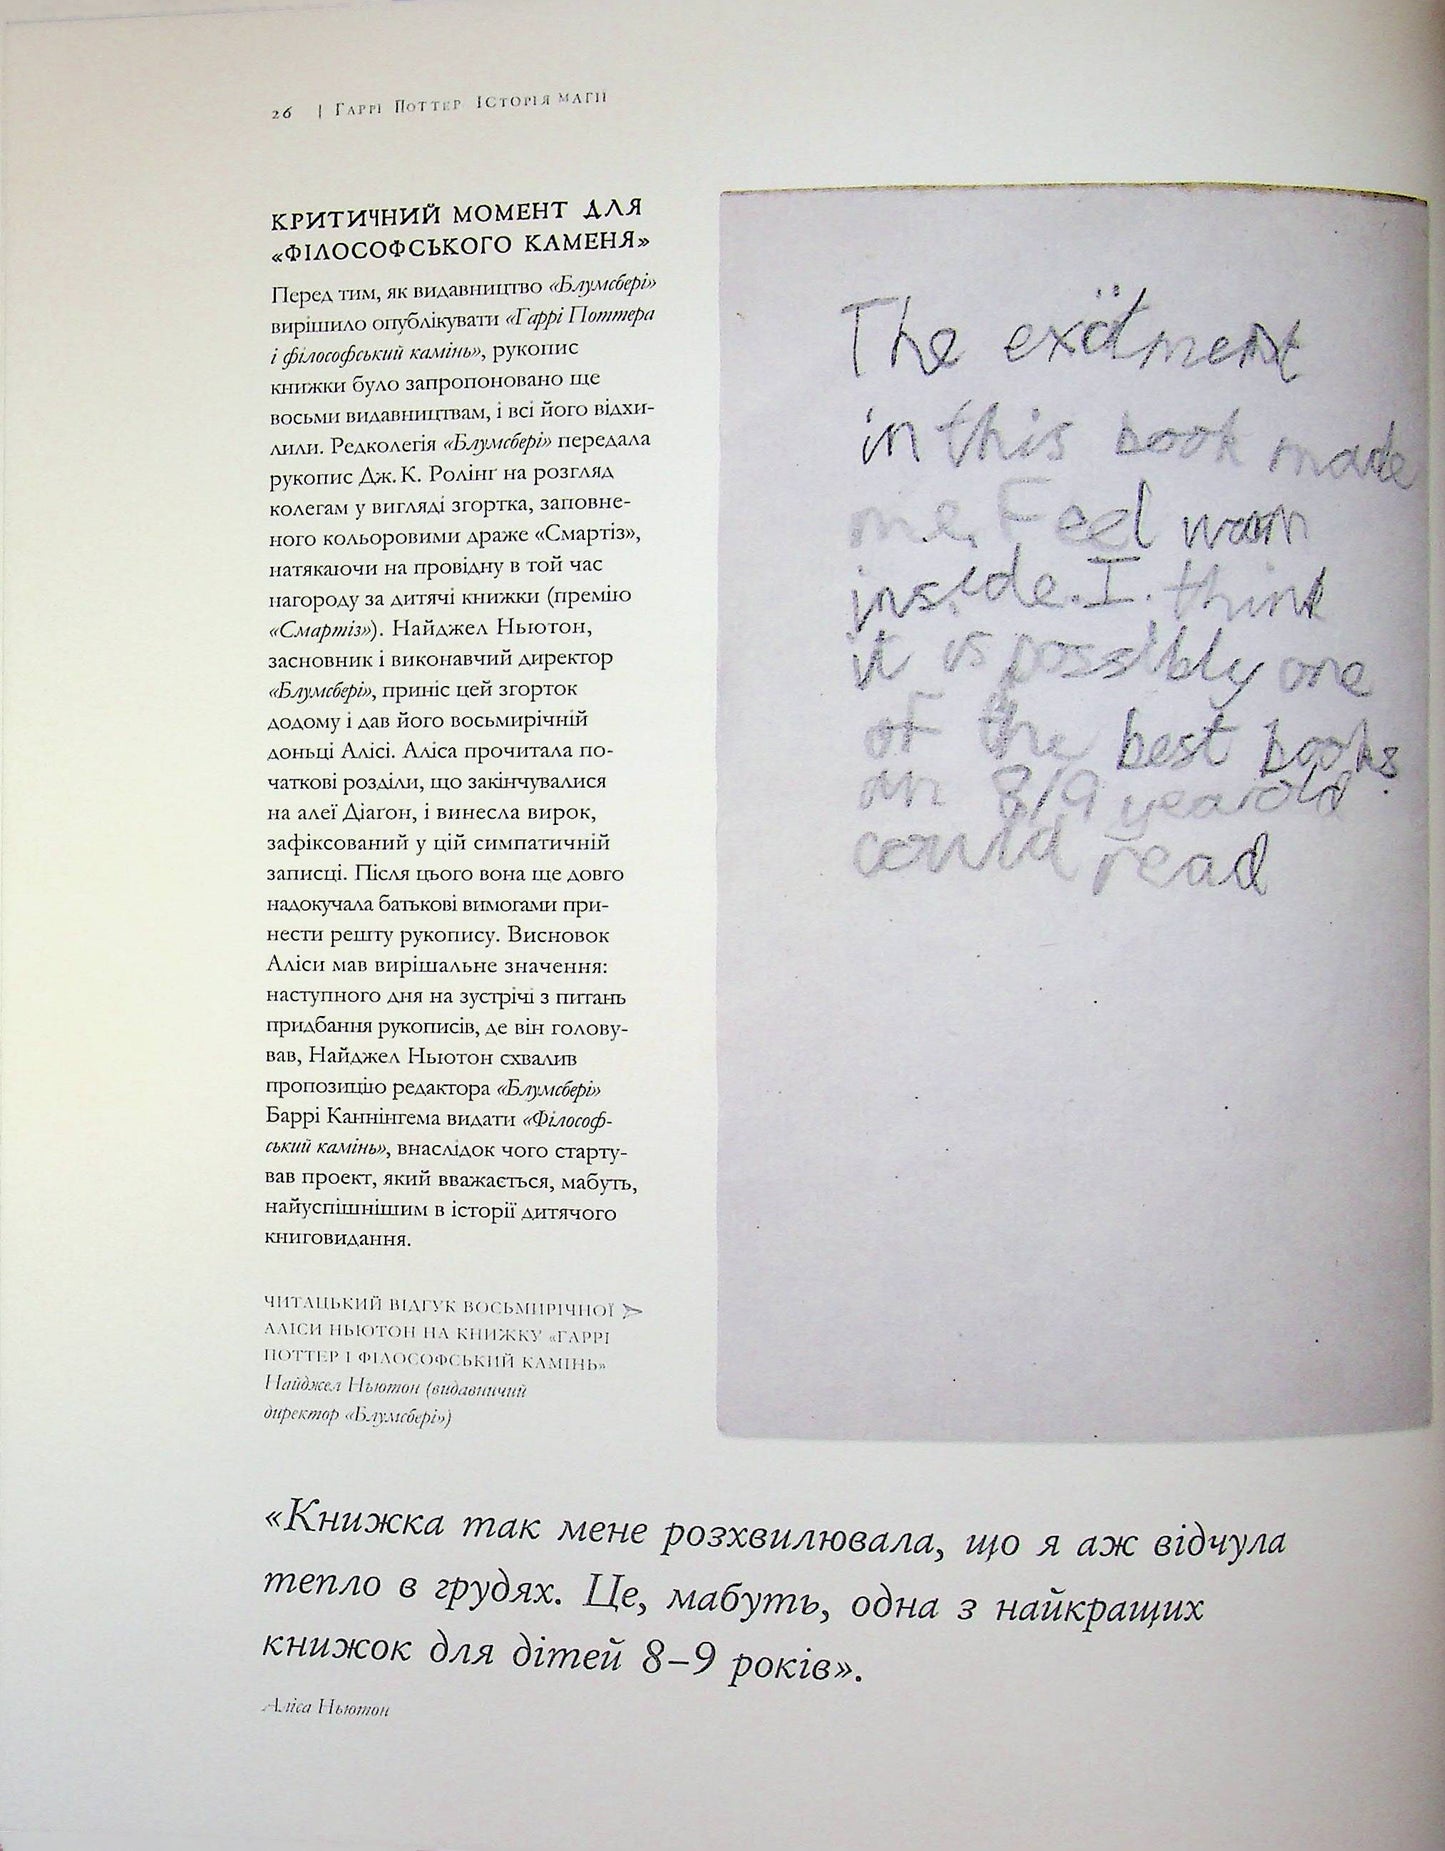 26 | Гаррі Поттер Історія магії
КРИТИЧНИЙ МОМЕНТ ДЛЯ
«ФІЛОСОФСЬКОГО КАМЕНЯ»
Перед тим, як видавництво «Блумсбері»
вирішило опублікувати «Гаррі Поттера
і філософський камінь», рукопис
книжки було запропоновано ще
восьми видавництвам, і всі його відхи-
лили. Редколегія «Блумсбері» передала
рукопис Дж. К. Ролінґ на розгляд
колегам у вигляді згортка, заповне-
ного кольоровими драже «Смартіз»,
натякаючи на провідну в той час
нагороду за дитячі книжки (премію
«Смартіз»). Найджел Ньютон,
засновник і виконавчий директор
«Блумсбері», приніс цей згорток
додому і дав його восьмирічній
доньці Алісі. Аліса прочитала по-
чаткові розділи, що закінчувалися
на алеї Діаґон, і винесла вирок,
зафіксований у цій симпатичній
записці. Після цього вона ще довго
надокучала батькові вимогами при-
нести решту рукопису. Висновок
Аліси мав вирішальне значення:
наступного дня на зустрічі з питань
придбання рукописів, де він голову-
вав, Найджел Ньютон схвалив
пропозицію редактора «Блумсбері»
Баррі Каннінгема видати «Філософ-
ський камінь», внаслідок чого старту-
вав проект, який вважається, мабуть,
найуспішнішим в історії дитячого
книговидання.
ЧИТАЦЬКИЙ ВІДГУК ВОСЬМИРІЧНОЇ
АЛІСИ НЬЮТОН НА КНИЖКУ «ГАРРІ
ПОТТЕР І ФІЛОСОФСЬКИЙ КАМІНЬ»
Найджел Ньютон (видавничий
директор «Блумсбері»)
The exitment
in this book made
me Feel warm
inside. I. think
it is possibly one
oF the best books
an 8/9 year old
could read
«Книжка так мене розхвилювала, що я аж відчула
тепло в грудях. Це, мабуть, одна з найкращих
книжок для дітей 8–9 років».
Аліса Ньютон